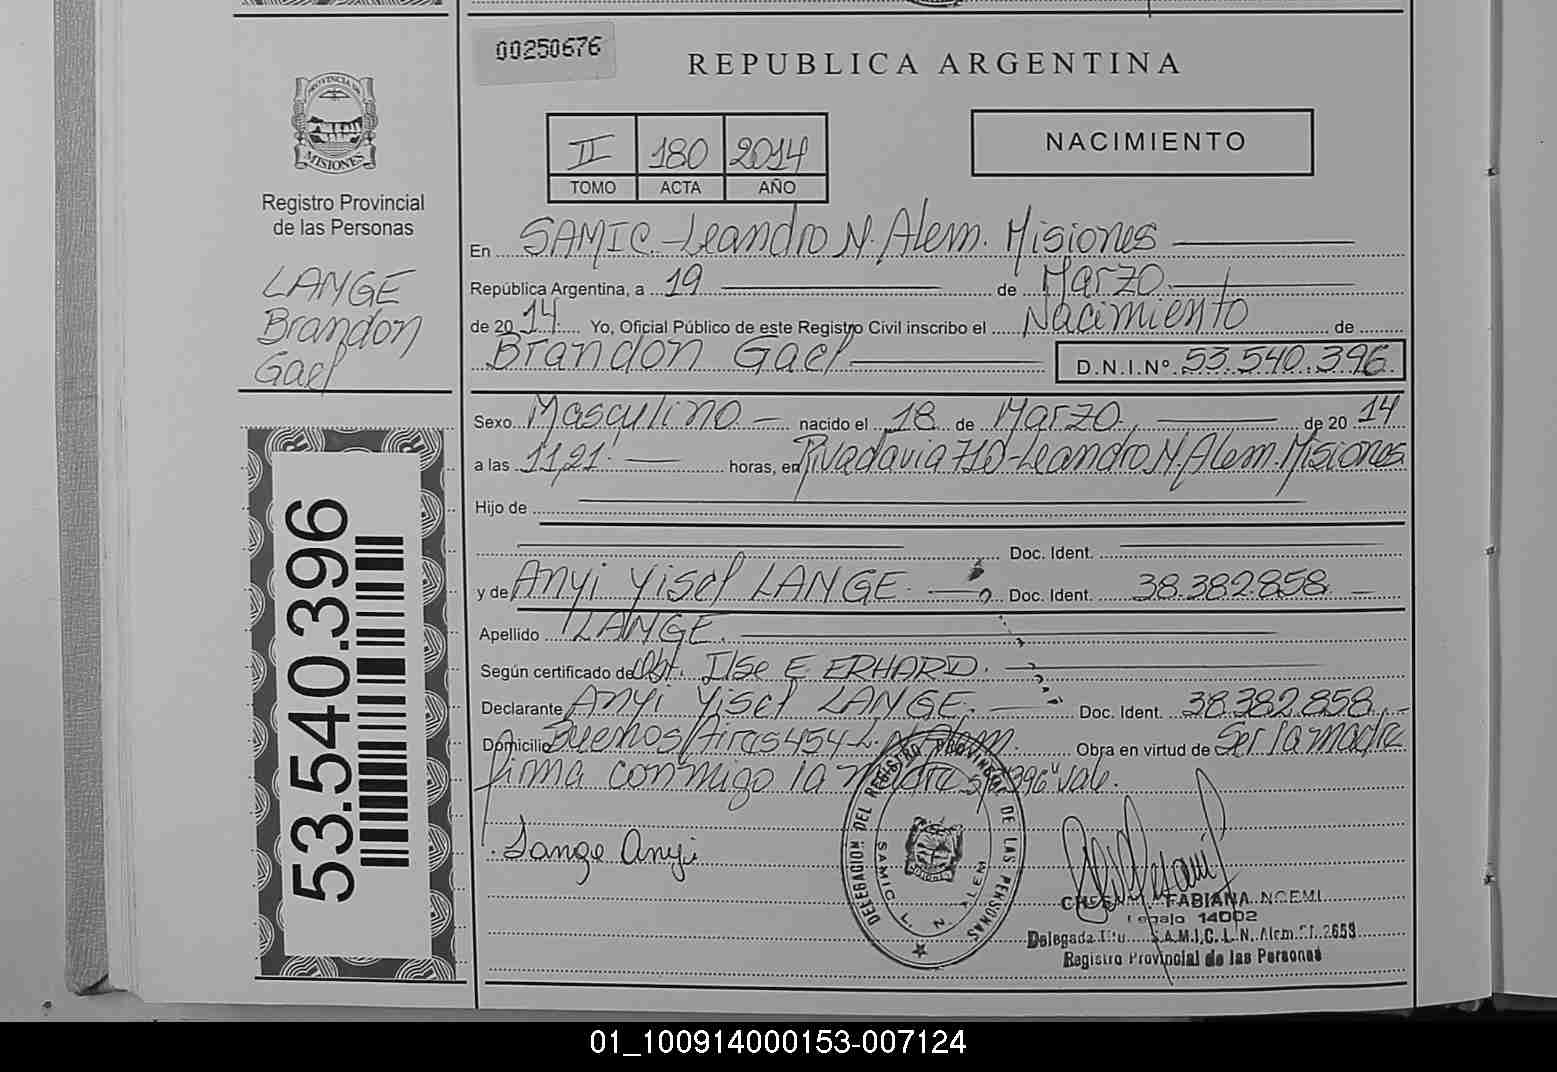 00250676
REPUBLICA ARGENTINA
PROVINCIA DE
MISIONES
Registro Provincial
de las Personas
LANGE
Brandon
Gael
II 180 2014
TOMO ACTA AÑO
NACIMIENTO
En SAMIC-Leandro N. Alem. Misiones
República Argentina, a 19 de Marzo
de 20 14 Yo, Oficial Público de este Registro Civil inscribo el Nacimiento de
Brandon Gael D.N.I.Nº 53.540.396
Sexo Masculino nacido el 18 de Marzo de 20 14
a las 11,21 horas, en Rivadavia 710-Leandro N. Alem. Misiones
Hijo de
Doc. Ident.
y de Anyi Yisel LANGE Doc. Ident. 38.382.858
Apellido LANGE.
Según certificado de Obt. Ilse E ERHARD.
Declarante Anyi Yisel LANGE. Doc. Ident. 38.382.858
Domicilio Buenos Aires 454-L. N. Alem. Obra en virtud de Ser la madre
firma conmigo la madre s/r "396" vale.
Lange Anyi
DELEGACION DEL REGISTRO PROVINCIAL DE LAS PERSONAS
SAMIC L. N. ALEM
FABIANA NOEMI
Legajo 14002
Delegada S.A.M.I.C. L. N. Alem 2653
Registro Provincial de las Personas
53.540.396
01_100914000153-007124